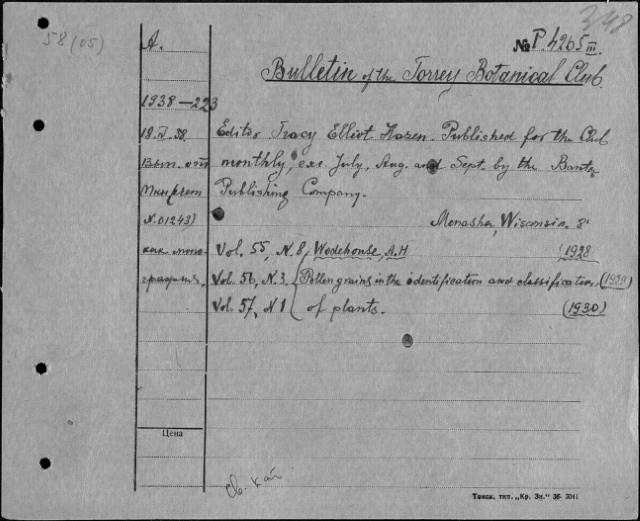 348
58(05)
A.
№ P.4265 III.
Bulletin of the Torrey Botanical Club.
1938—223
18.II.38.
Editor Tracy Elliot Hazen. Published for the Club
monthly, exc. July, Aug. and Sept. by the Banta
Publishing Company.
N.01243)
Menasha, Wisconsin. 8°
как моно
графия.
Vol. 55, N.8, Wodehouse, A.H (1928
Vol. 56, N.3. Pollen grains in the identification and classification (1929)
Vol. 57, N 1 of plants. (1930)
Цена
Св. кат
Томск. тип. „Кр. Зн." 36- 3041